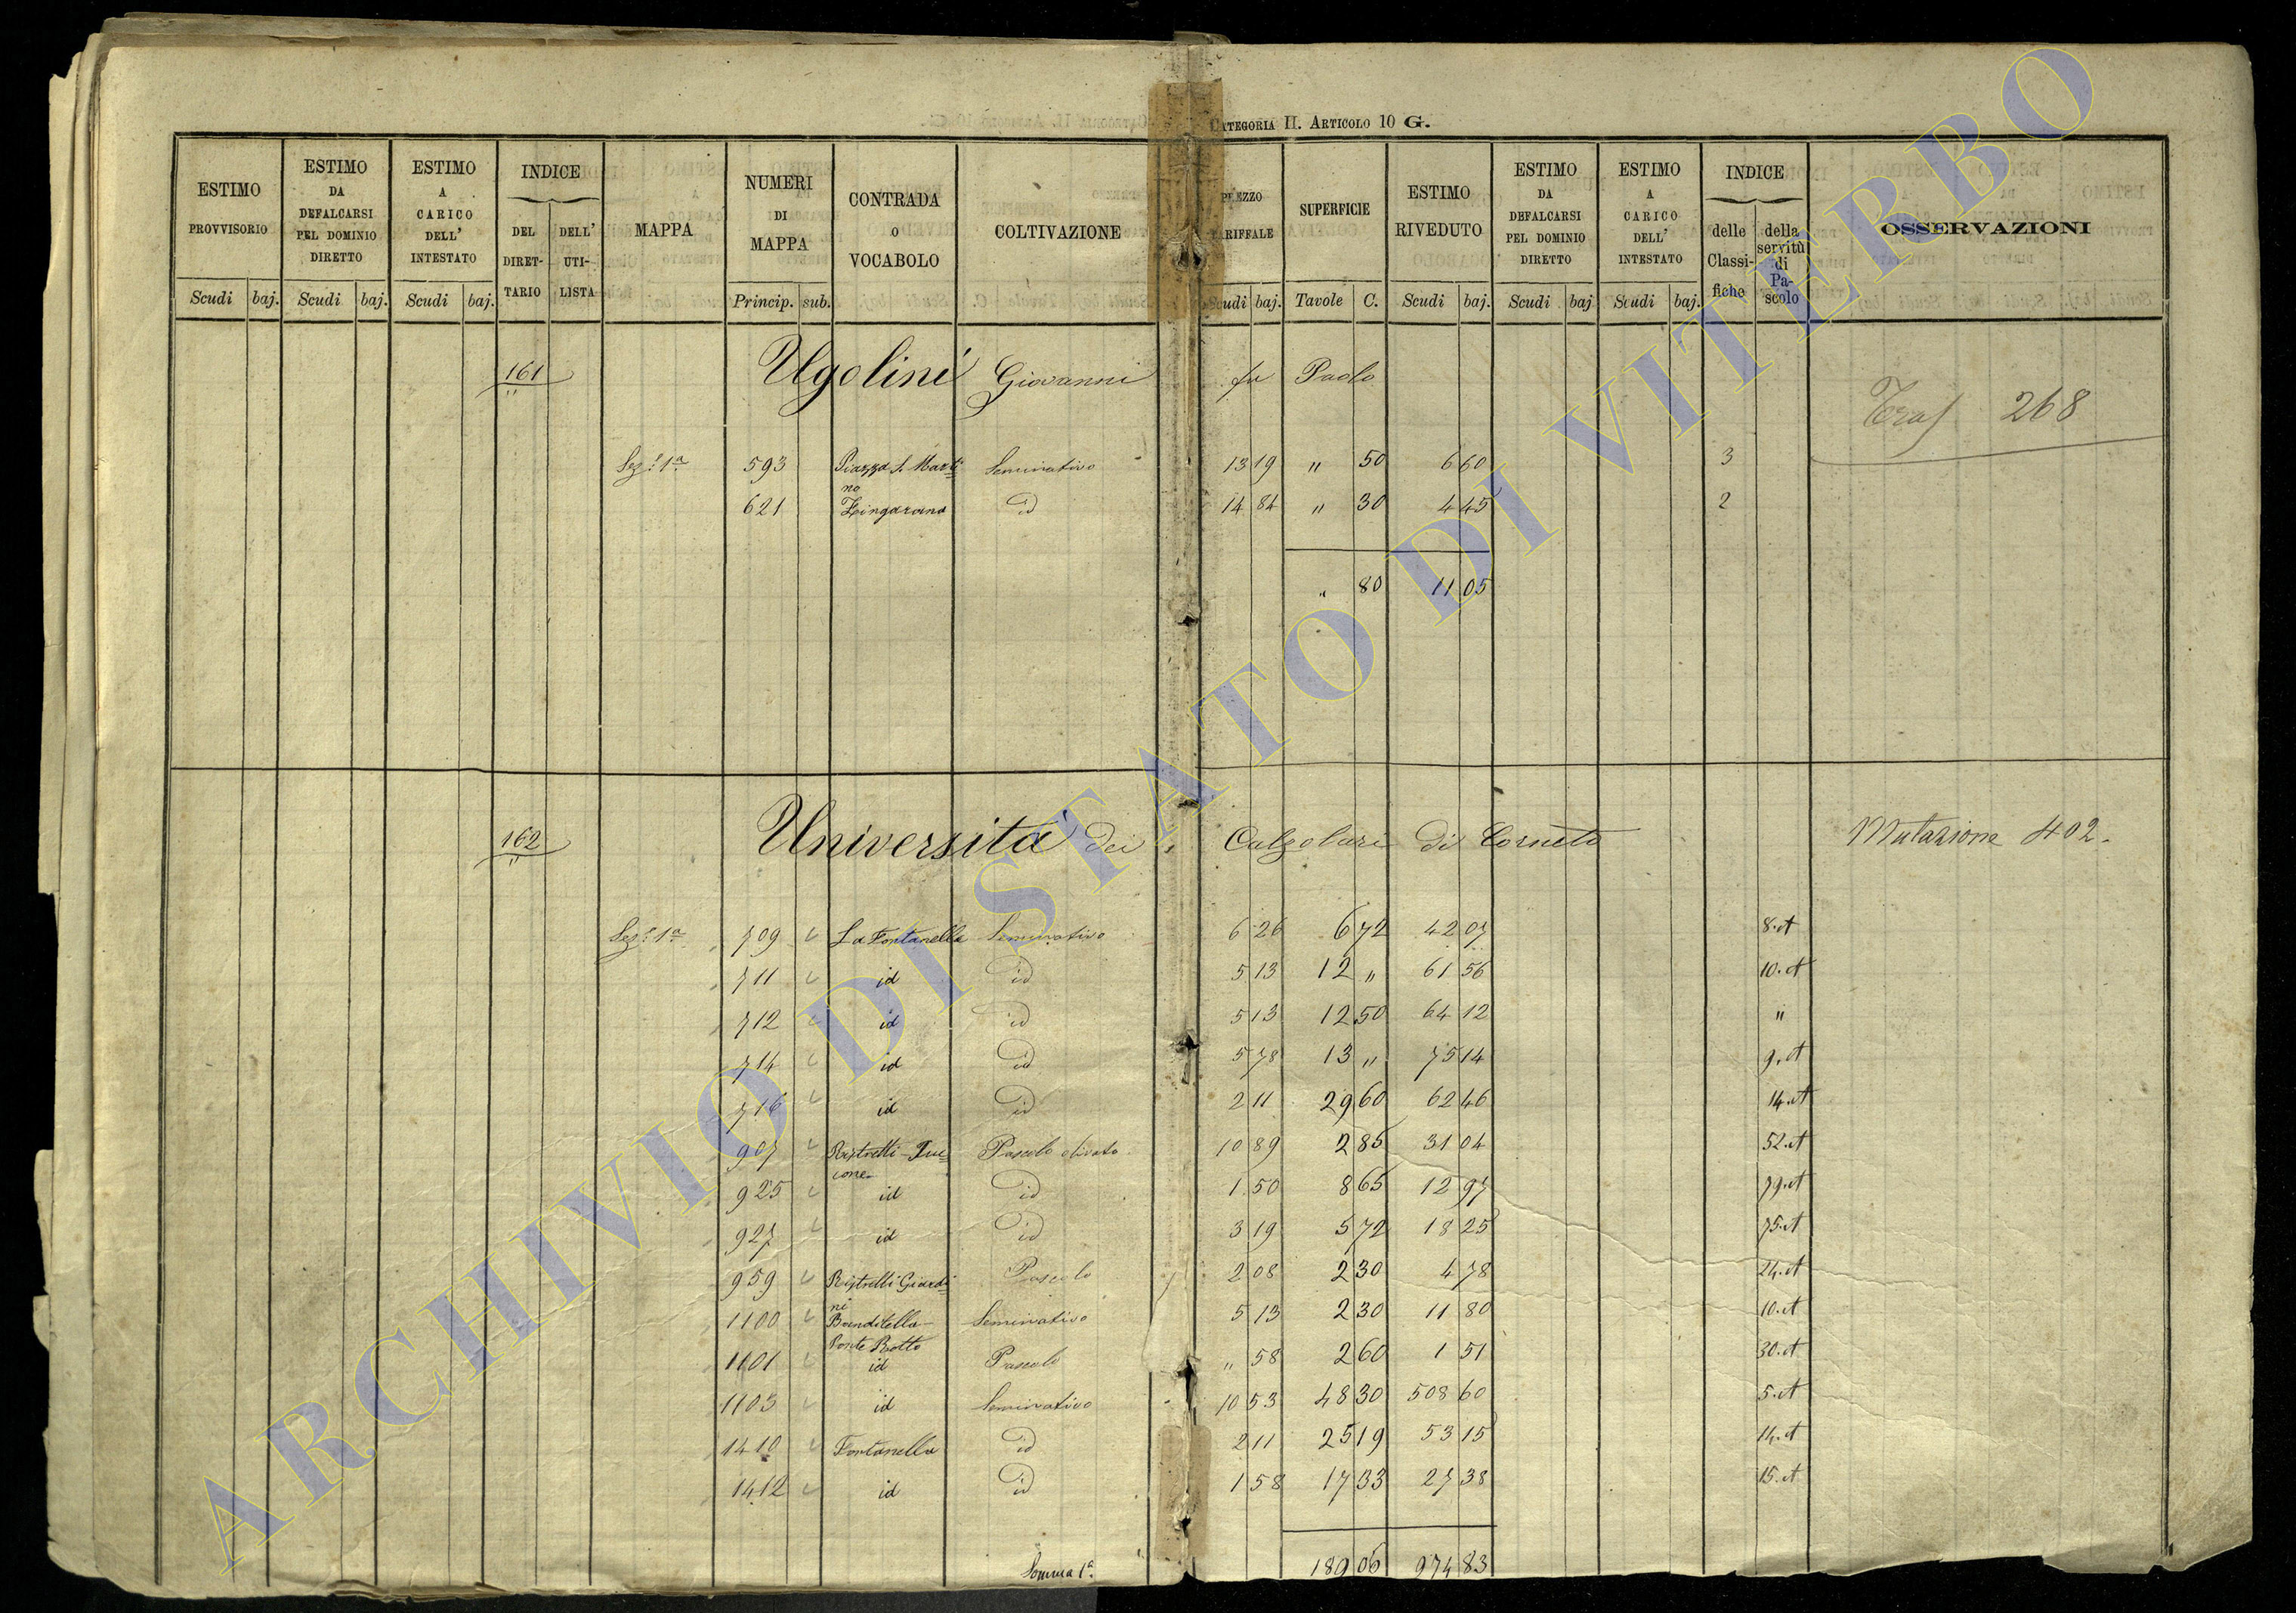 CATEGORIA II. ARTICOLO 10 G.
ESTIMO PROVVISORIO Scudi baj. ESTIMO DA DEFALCARSI PEL DOMINIO DIRETTO Scudi baj. ESTIMO A CARICO DELL' INTESTATO Scudi baj. INDICE DEL DIRET-TARIO DELL' UTI-LISTA MAPPA NUMERI DI MAPPA Princip. sub. CONTRADA O VOCABOLO COLTIVAZIONE PREZZO TARIFFALE Scudi baj. SUPERFICIE Tavole C. ESTIMO RIVEDUTO Scudi baj. ESTIMO DA DEFALCARSI PEL DOMINIO DIRETTO Scudi baj ESTIMO A CARICO DELL' INTESTATO Scudi baj. INDICE delle Classi-fiche della servitù di Pa-scolo OSSERVAZIONI
161 Ugolini Giovanni fu Paolo
Tras 268
Sez.e 1a 593 Piazza S. Marti= Seminativo 13 19 " 50 6 60 3
no
621 Zingarana id 14 84 " 30 4 45 2
" 80 11 05
162 Università dei Calzolari di Corneto Mutazione 402.
Sez.e 1a 709 La Fontanella Seminativo 6 26 6 72 42 07 8.et
711 id id 5 13 12 " 61 56 10.et
712 id id 5 13 12 50 64 12 "
714 id id 5 78 13 " 75 14 9.et
716 id id 2 11 29 60 62 46 14.et
907 Ristretti- Pascolo olivato 10 89 2 85 31 04 52.et
cone
925 id id 1 50 8 65 12 97 79.et
927 id id 3 19 5 72 18 25 75.et
959 Ristretti Giardi= Pascolo 2 08 2 30 4 78 24.et
ni
1100 Banditella- Seminativo 5 13 2 30 11 80 10.et
Ponte Rotto
1101 id Pascolo " 58 2 60 1 51 30.et
1103 id Seminativo 10 53 48 30 508 60 5.et
1410 Fontanella id 2 11 25 19 53 15 14.et
1412 id id 1 58 17 33 27 38 15.et
Somma 1a. 189 06 974 83
ARCHIVIO DI STATO DI VITERBO